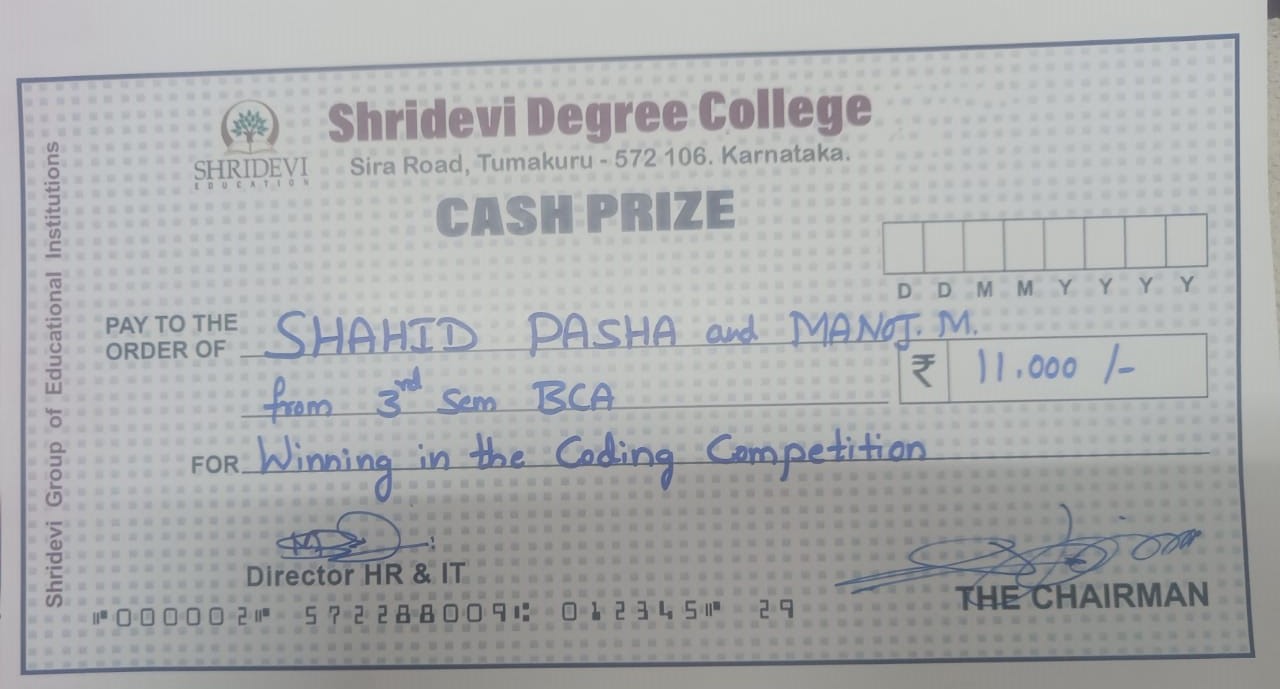 Shridevi Group of Educational Institutions
SHRIDEVI
EDUCATION
Shridevi Degree College
Sira Road, Tumakuru - 572 106. Karnataka.
CASH PRIZE
D D M M Y Y Y Y
PAY TO THE ORDER OF SHAHID PASHA and MANOJ. M.
₹ 11.000 /-
from 3rd Sem BCA
FOR Winning in the Coding Competition
Director HR & IT
THE CHAIRMAN
⑈000002⑈ 572288009⑆ 012345⑈ 29